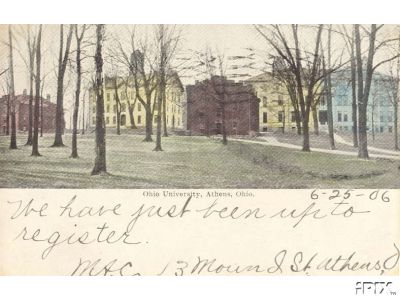 Ohio University, Athens, Ohio.
6-25-06
We have just been up to
register.
13 Mound St. Athens, O
iPIX